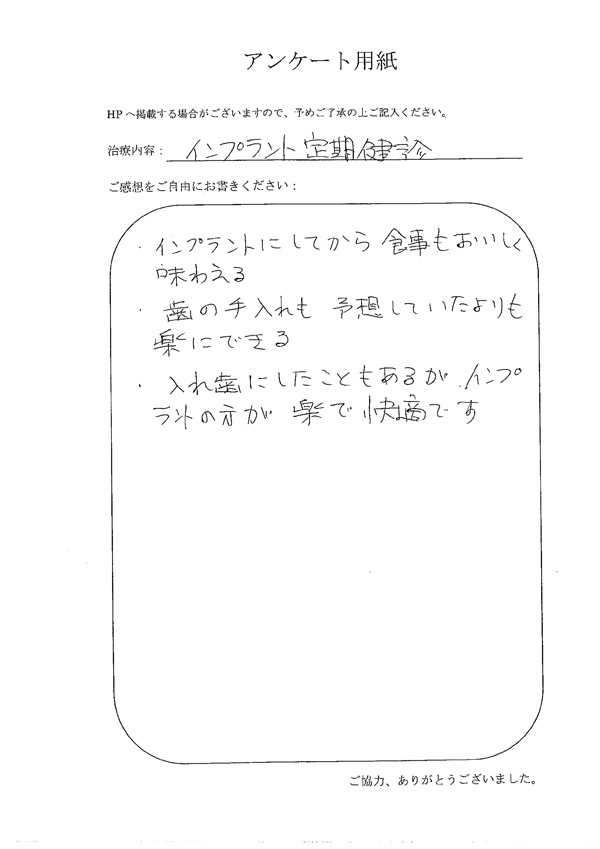 アンケート用紙
HPへ掲載する場合がございますので、予めご了承の上ご記入ください。
治療内容： インプラント定期健診
ご感想をご自由にお書きください：
・インプラントにしてから 食事もおいしく
味わえる
・歯の手入れも 予想していたよりも
楽にできる
・入れ歯にしたこともあるが、インプ
ラントの方が 楽で 快適です
ご協力、ありがとうございました。